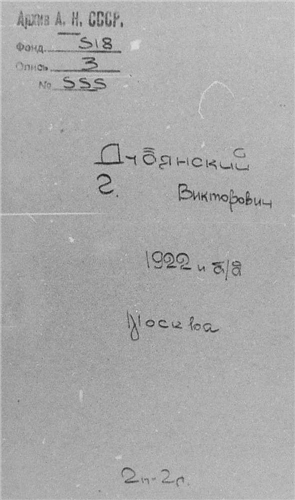 Архив А. Н. СССР.
Фонд 518
Опись 3
№ 555
Дубянский
Г. Викторович
1922 и б/д
Москва
2п-2л.